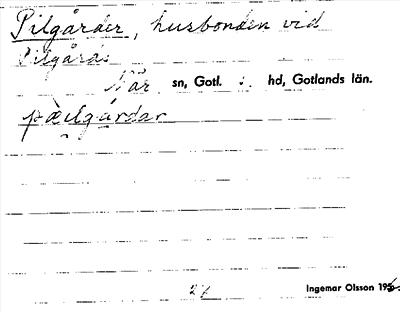 Pilgårder, husbonden vid
Pilgårds
När sn, Gotl. s. hd, Gotlands län.
pæilgårdar
27
Ingemar Olsson 195